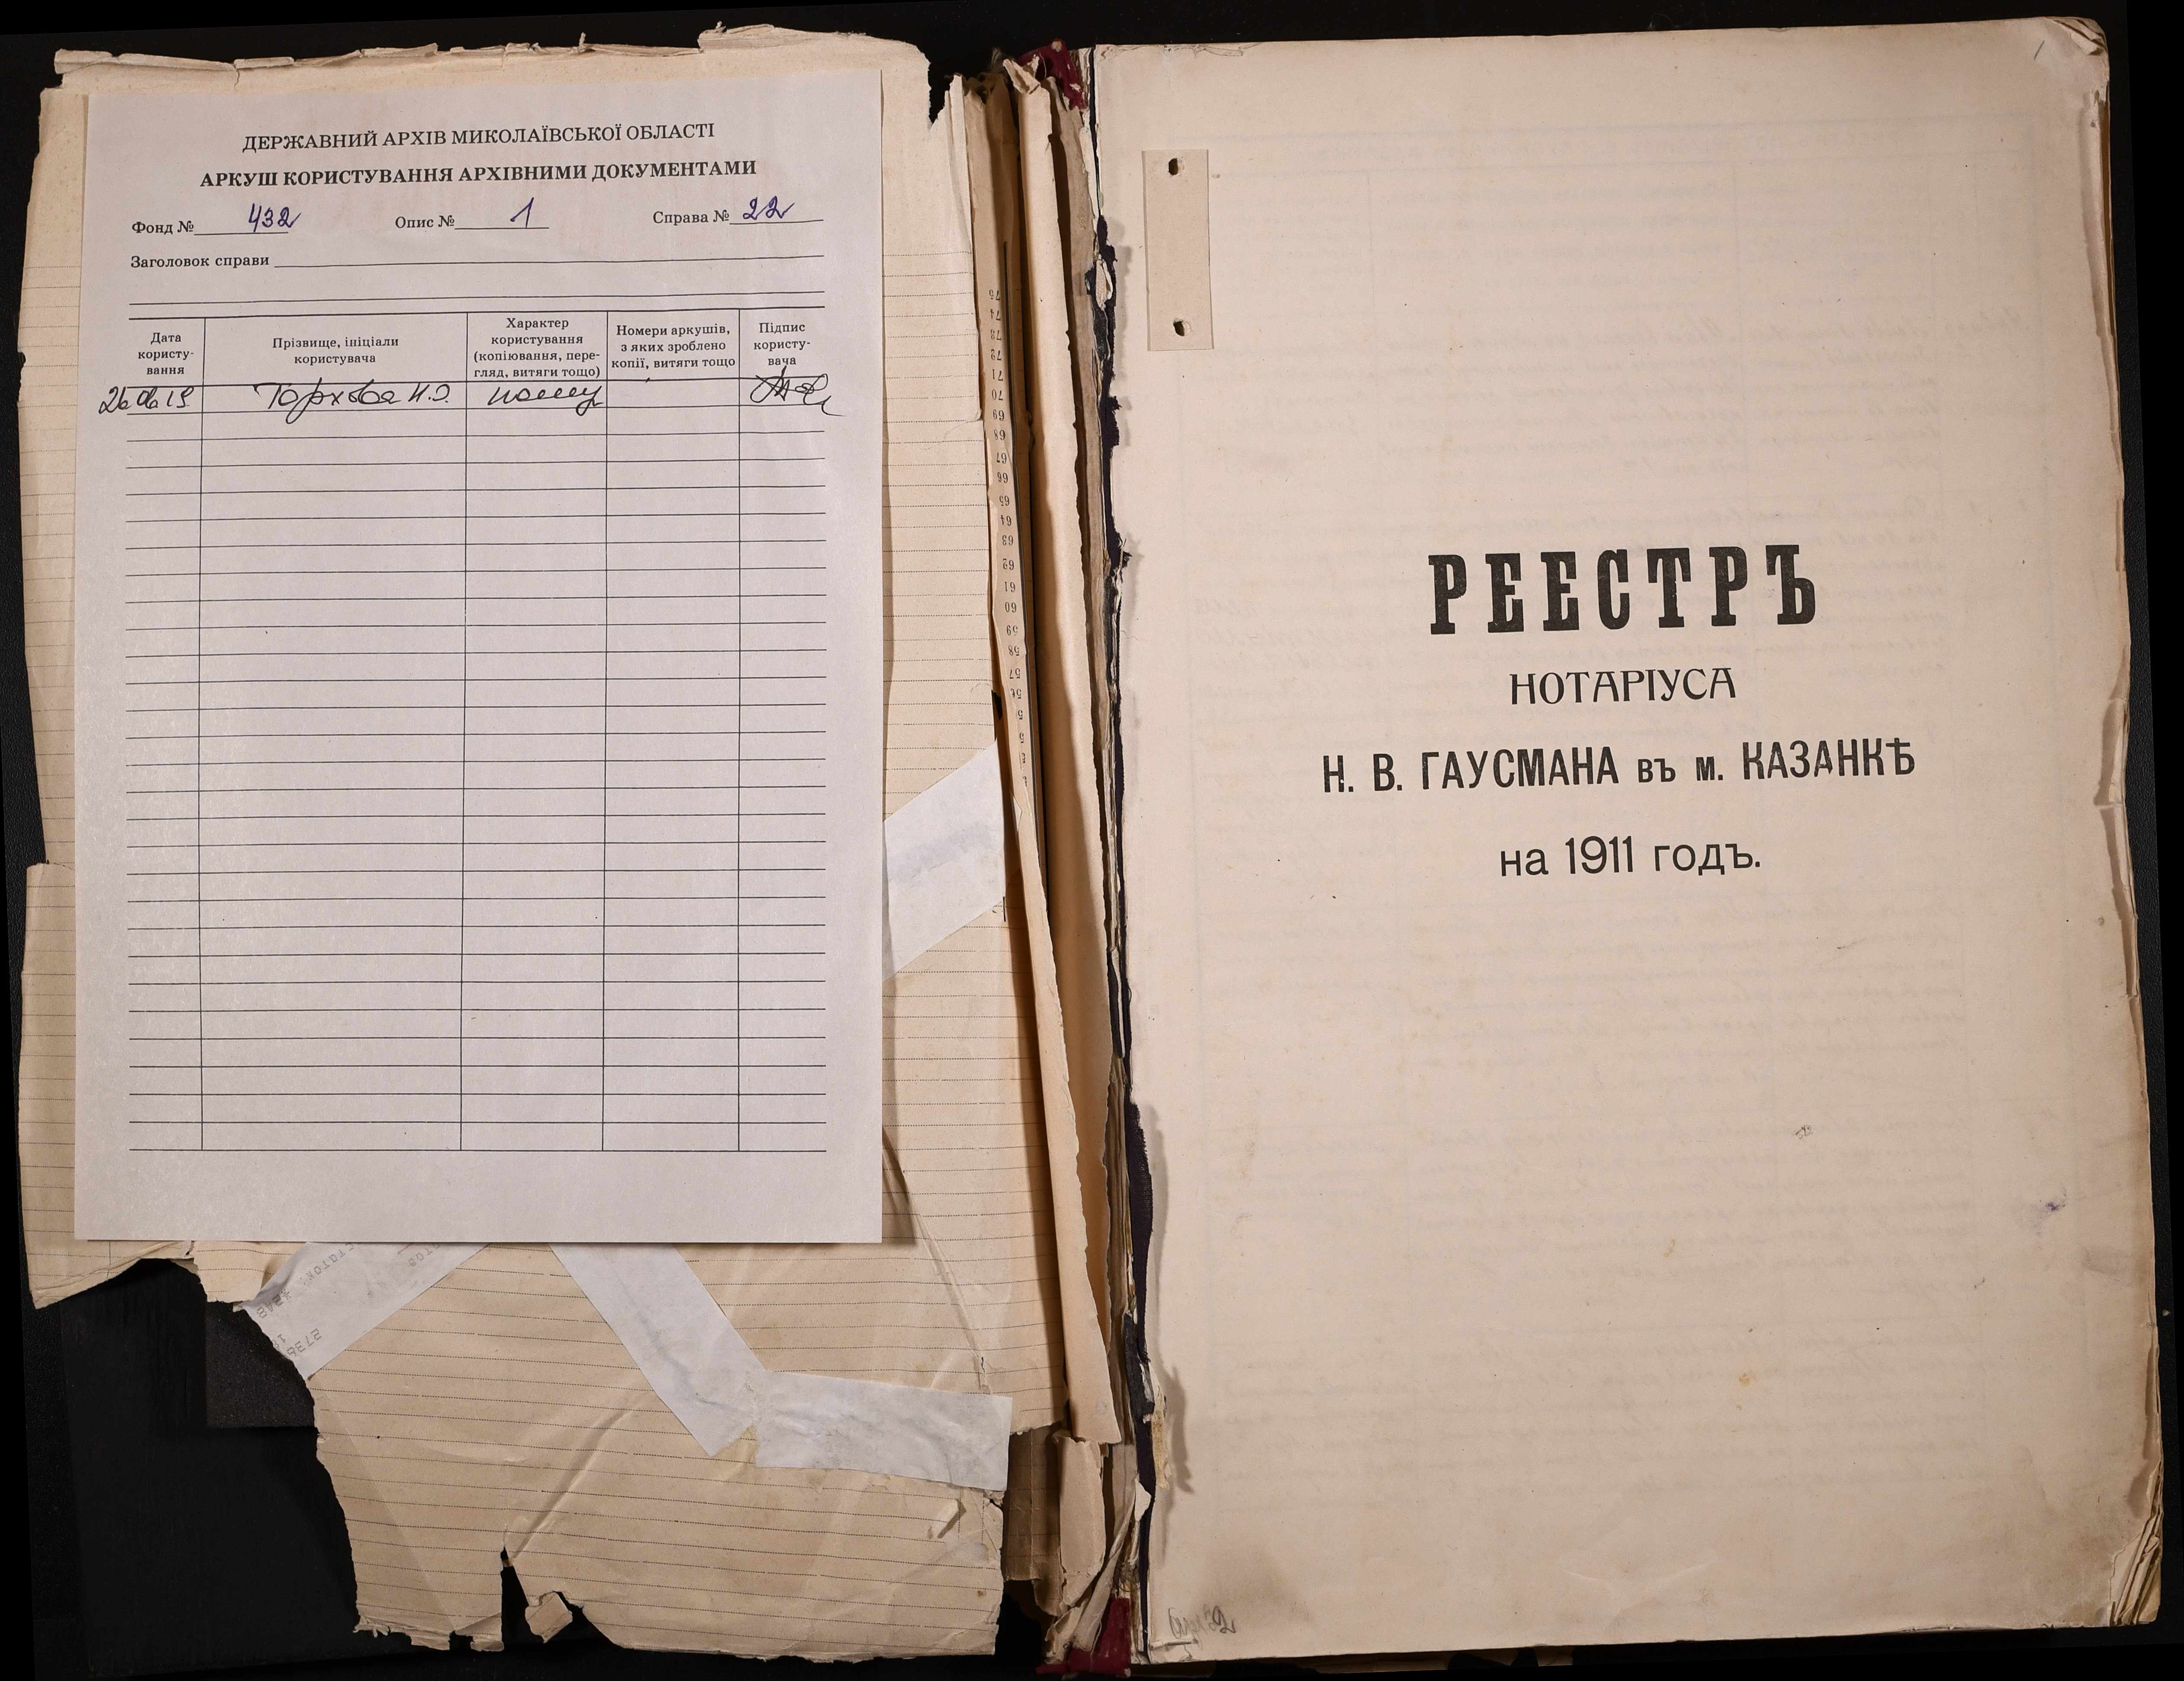 ДЕРЖАВНИЙ АРХІВ МИКОЛАЇВСЬКОЇ ОБЛАСТІ
АРКУШ КОРИСТУВАННЯ АРХІВНИМИ ДОКУМЕНТАМИ
Фонд № 432 Опис № 1 Справа № 22
Заголовок справи
Дата користу-вання
Прізвище, ініціали користувача
Характер користування (копіювання, пере-гляд, витяги тощо)
Номери аркушів, з яких зроблено копії, витяги тощо
Підпис користу-вача
26 06 19
75
74
73
72
71
70
69
68
67
66
65
64
63
62
61
60
59
58
57
1
РЕЕСТРЪ
НОТАРІУСА
Н. В. ГАУСМАНА въ м. КАЗАНКѢ
на 1911 годъ.